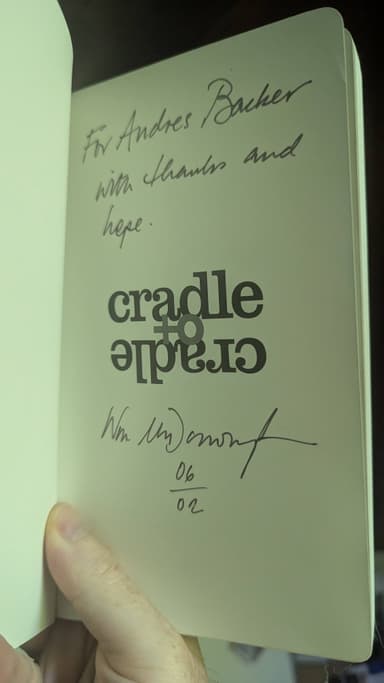 For Andres Backer
with thanks and
hope.
cradle
to
cradle
Wm McDonough
06
02